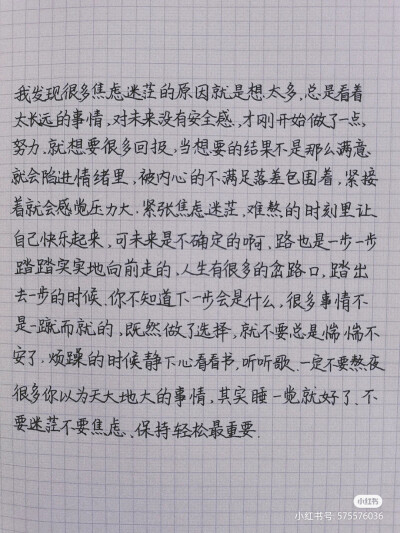 我发现很多焦虑迷茫的原因就是想太多,总是看着
太长远的事情,对未来没有安全感,才刚开始做了一点,
努力.就想要很多回报.当想要的结果不是那么满意
就会陷进情绪里,被内心的不满足落差包围着,紧接
着就会感觉压力大.紧张焦虑迷茫,难熬的时刻里让
自己快乐起来,可未来是不确定的啊,路也是一步一步
踏踏实实地向前走的,人生有很多的岔路口,踏出
去一步的时候.你不知道下一步会是什么,很多事情不
是一蹴而就的,既然做了选择,就不要总是惴惴不
安了.烦躁的时候静下心看看书,听听歌.一定不要熬夜
很多你以为天大地大的事情,其实睡一觉就好了.不
要迷茫不要焦虑、保持轻松最重要.
小红书
小红书号: 575576036